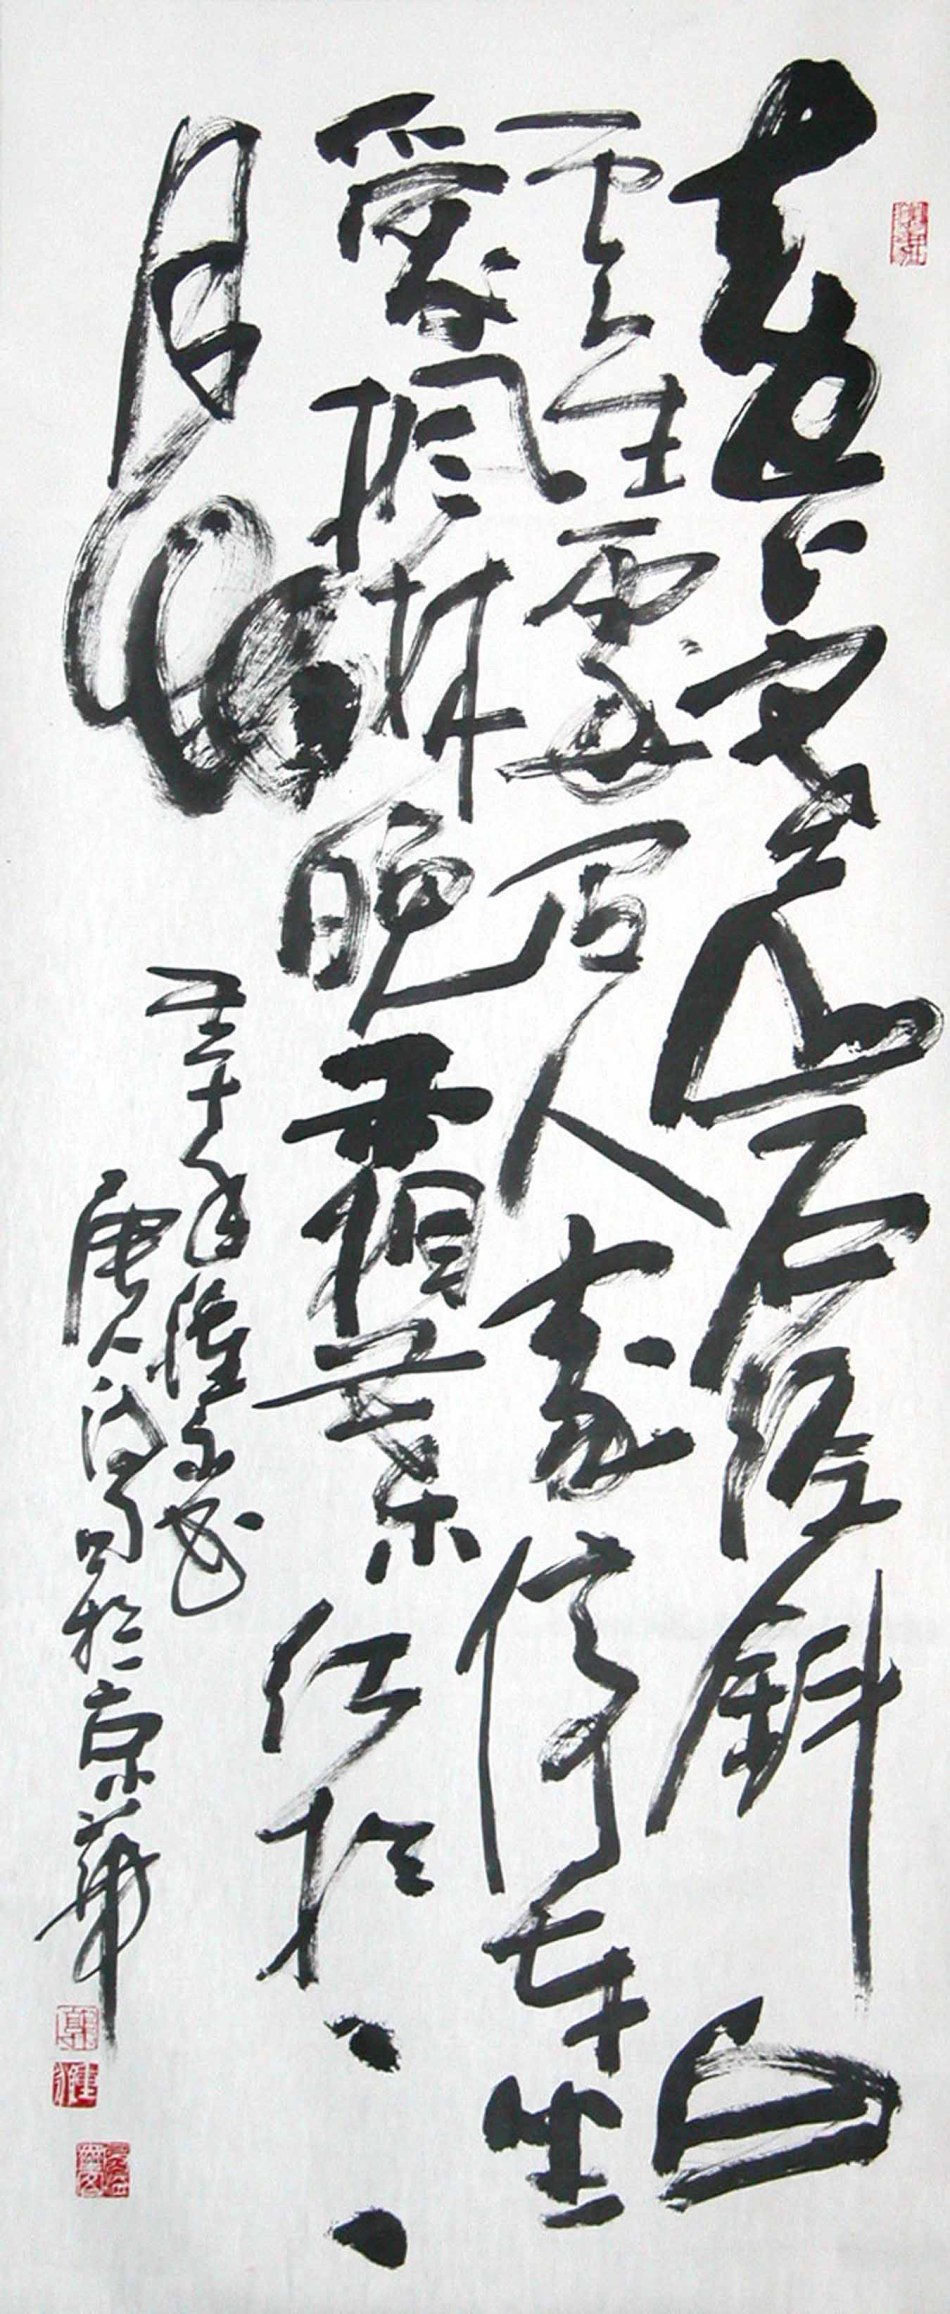 遠上寒山石徑斜白
雲生處有人家停車坐
愛楓林晚霜葉紅於二
月花
壬午年隆冬書
唐人詩句於京華